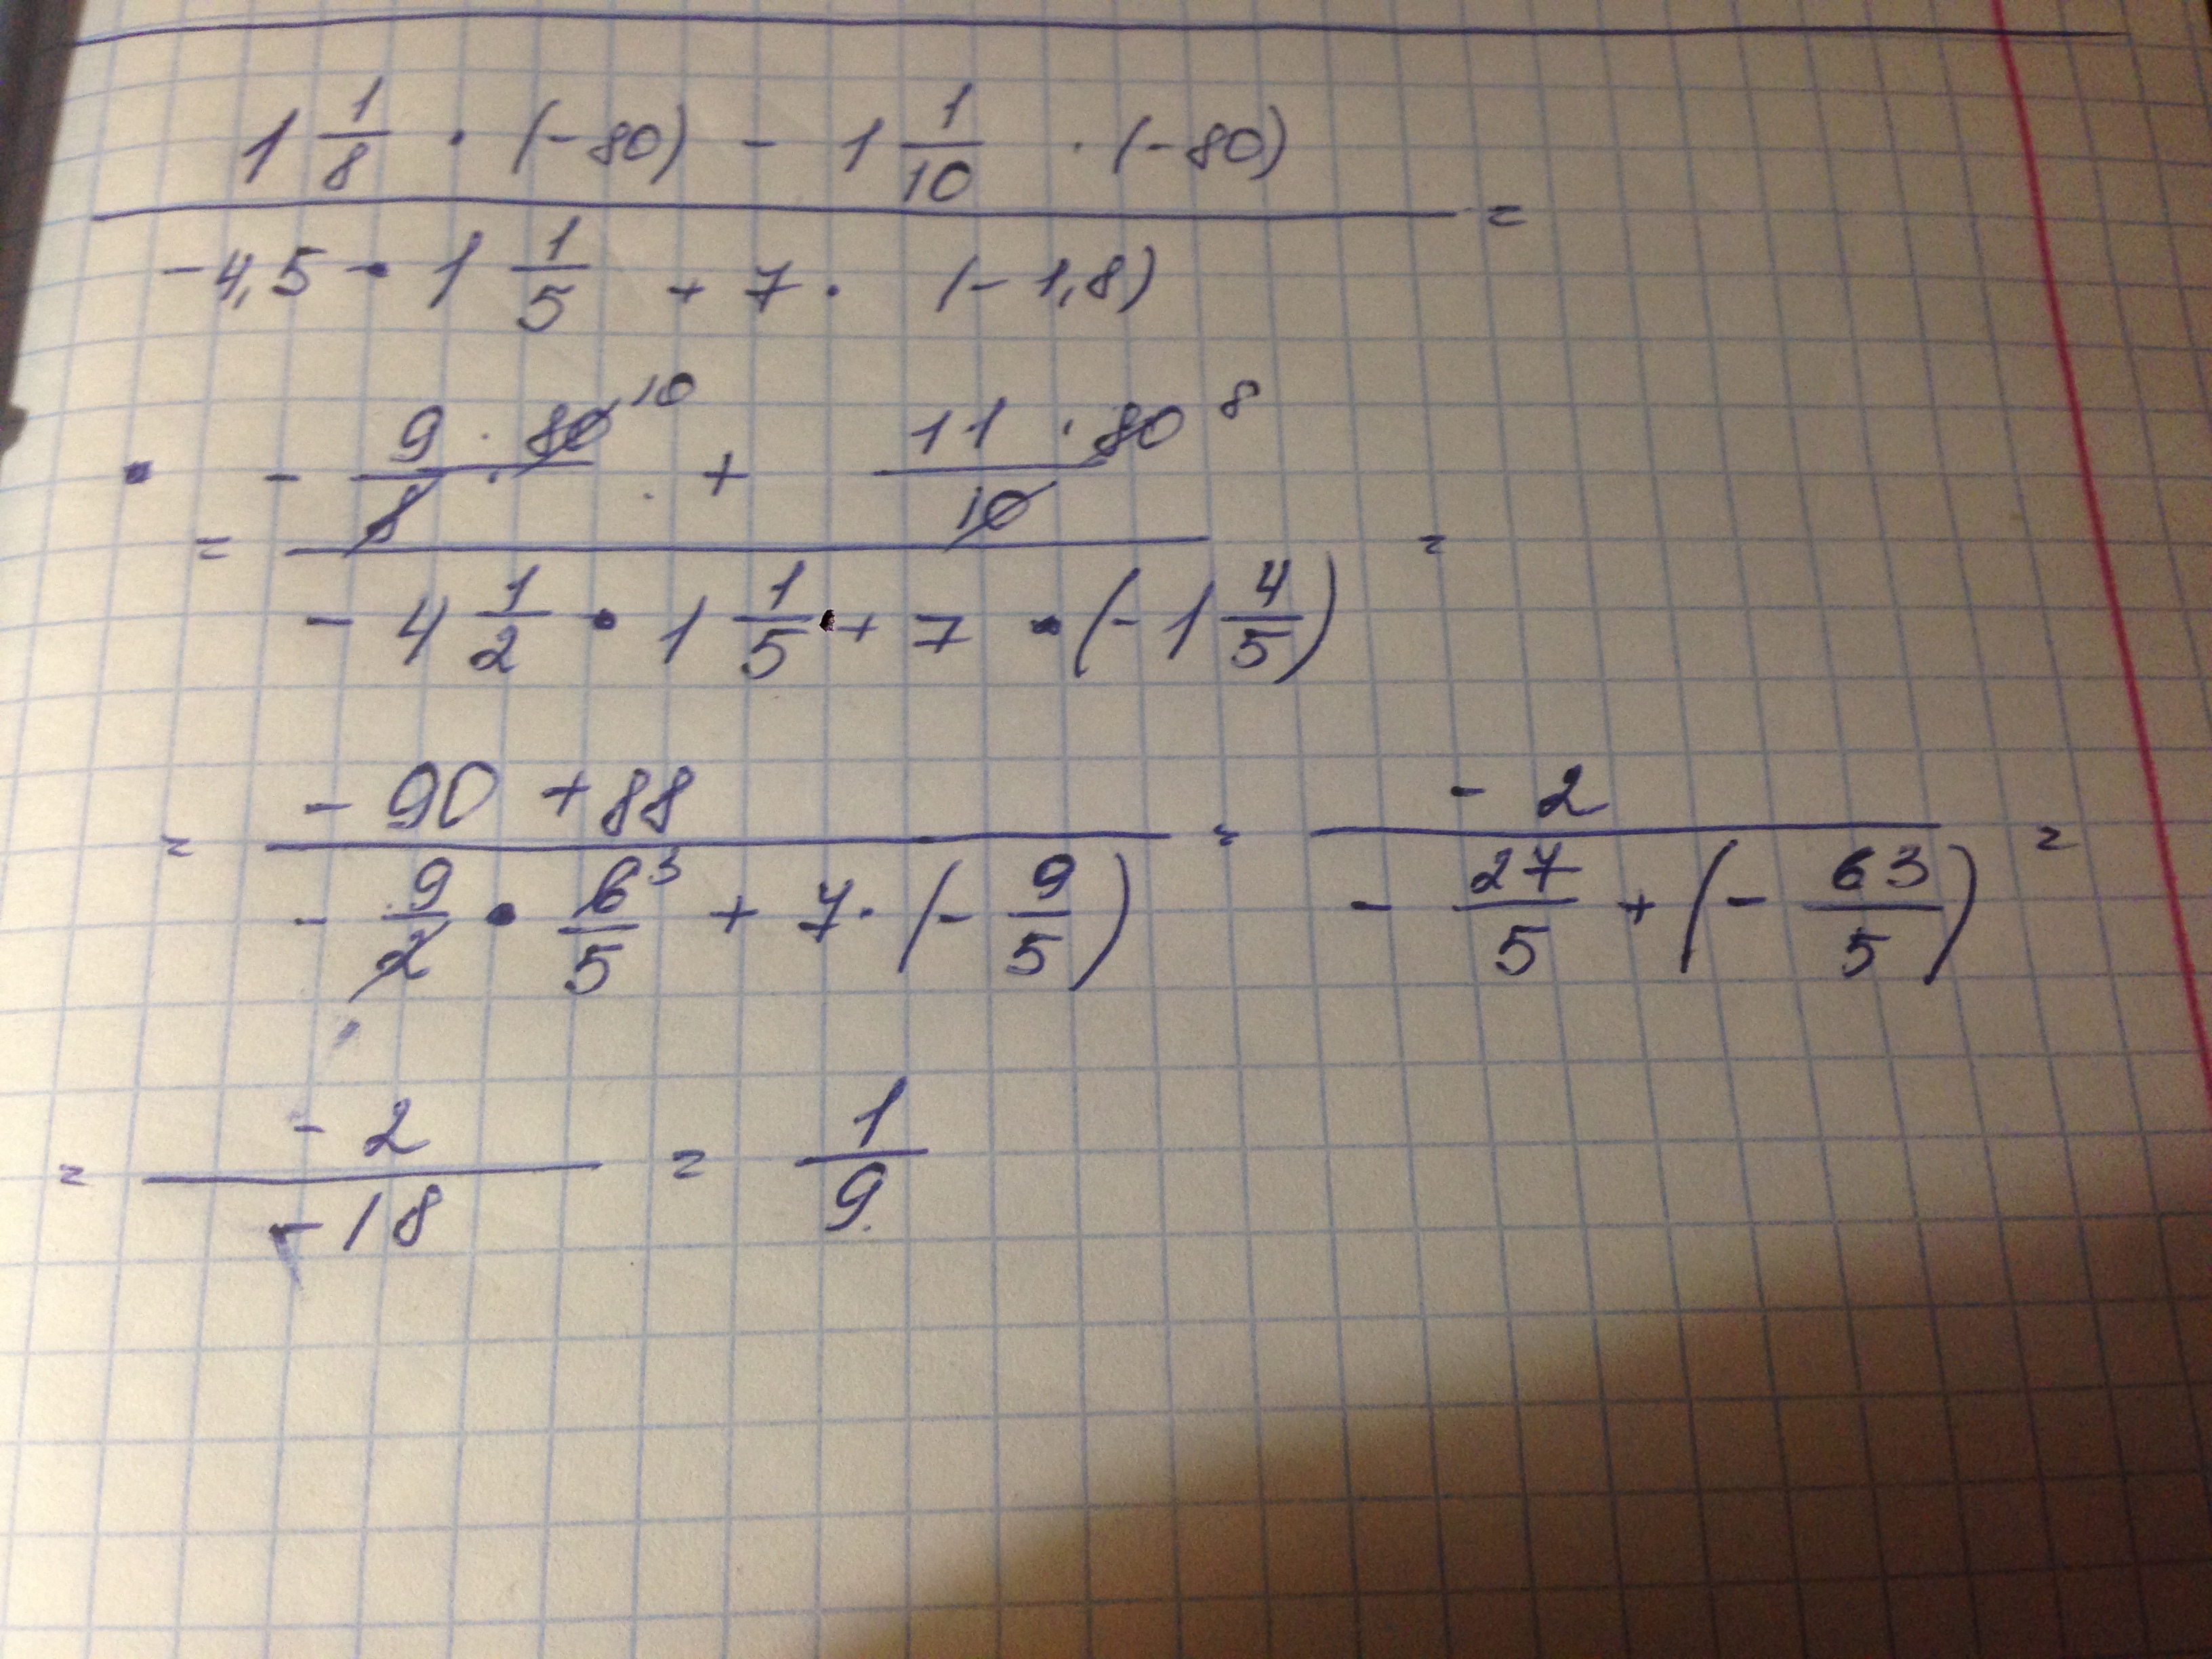 1 1/8 · (-80) - 1 1/10 · (-80)
=
-4,5 · 1 1/5 + 7 · (-1,8)
- 9 · 80 10 / 8 + 11 · 80 8 / 10
= =
- 4 1/2 · 1 1/5 + 7 · (-1 4/5)
= - 90 + 88 / - 9/2 · 6 3/5 + 7 · (- 9/5) = - 2 / - 27/5 + (- 63/5) =
= - 2 / - 18 = 1/9